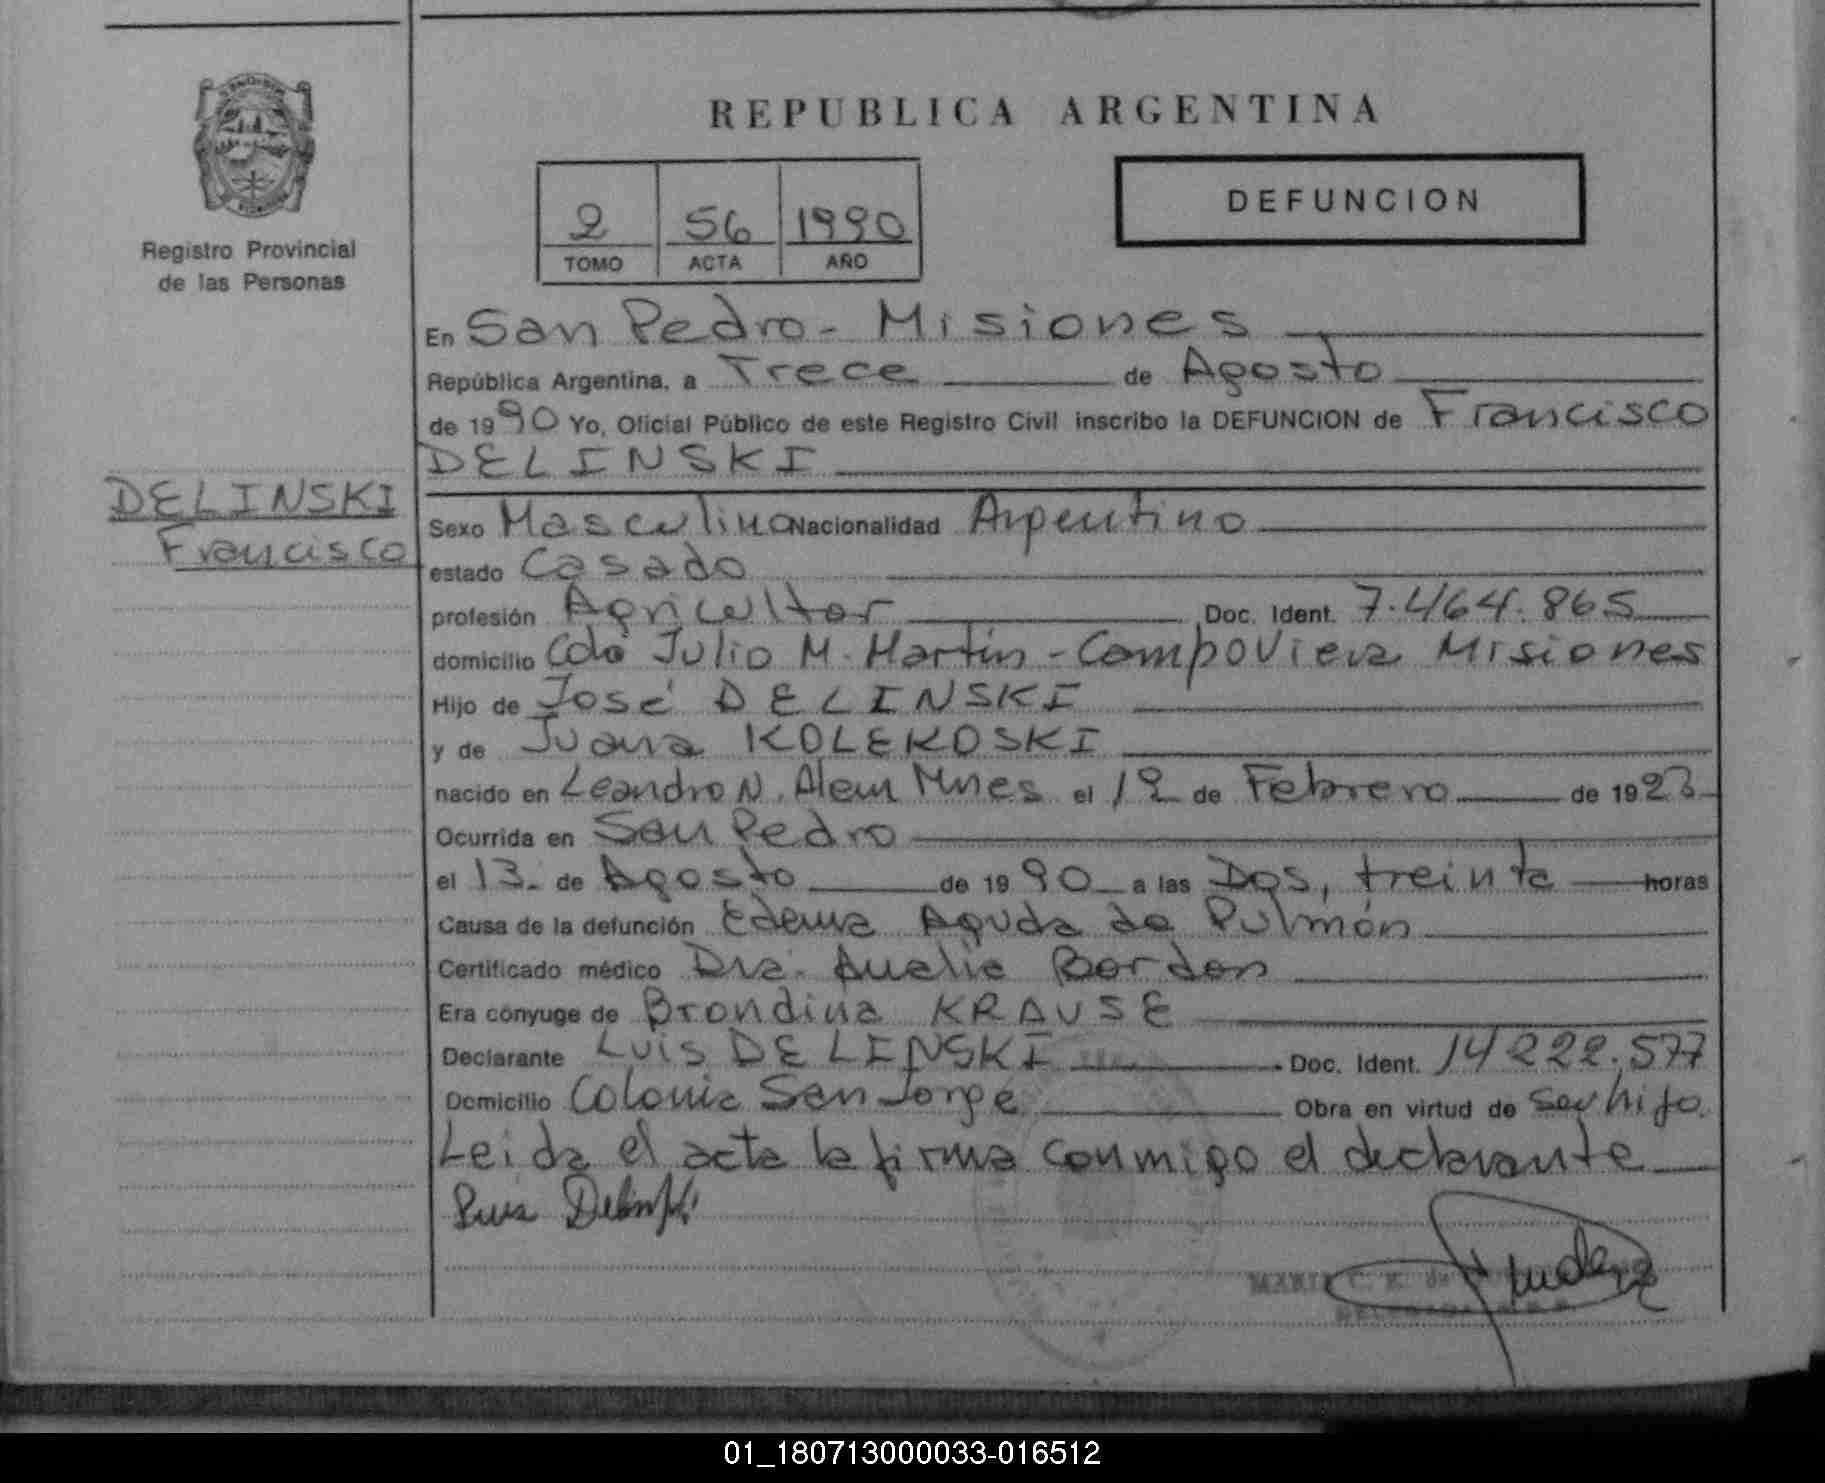 REPUBLICA ARGENTINA
Registro Provincial
de las Personas
2 56 1990
TOMO ACTA AÑO
DEFUNCION
En San Pedro - Misiones
República Argentina, a Trece de Agosto
de 1990 Yo, Oficial Público de este Registro Civil inscribo la DEFUNCION de Francisco
DELINSKI
DELINSKI
Francisco
Sexo Masculino Nacionalidad Argentino
estado Casado
profesión Agricultor Doc. Ident. 7.464.865
domicilio Julio M. Martin - Campo Viera Misiones
Hijo de José DELINSKI
y de Juana KOLEKOSKI
nacido en Leandro N. Alem Mnes el 12 de Febrero de 1923
Ocurrida en San Pedro
el 13 de Agosto de 1990 a las Dos, treinta horas
Causa de la defunción Edema Aguda de Pulmón
Certificado médico Dra. Bordon
Era cónyuge de Brondina KRAUSE
Declarante Luis DELINSKI Doc. Ident. 14 222.577
Domicilio Colonia San Jorge Obra en virtud de ser hijo.
Leida el acta la firma conmigo el declarante
Luis Delinski
01_180713000033-016512